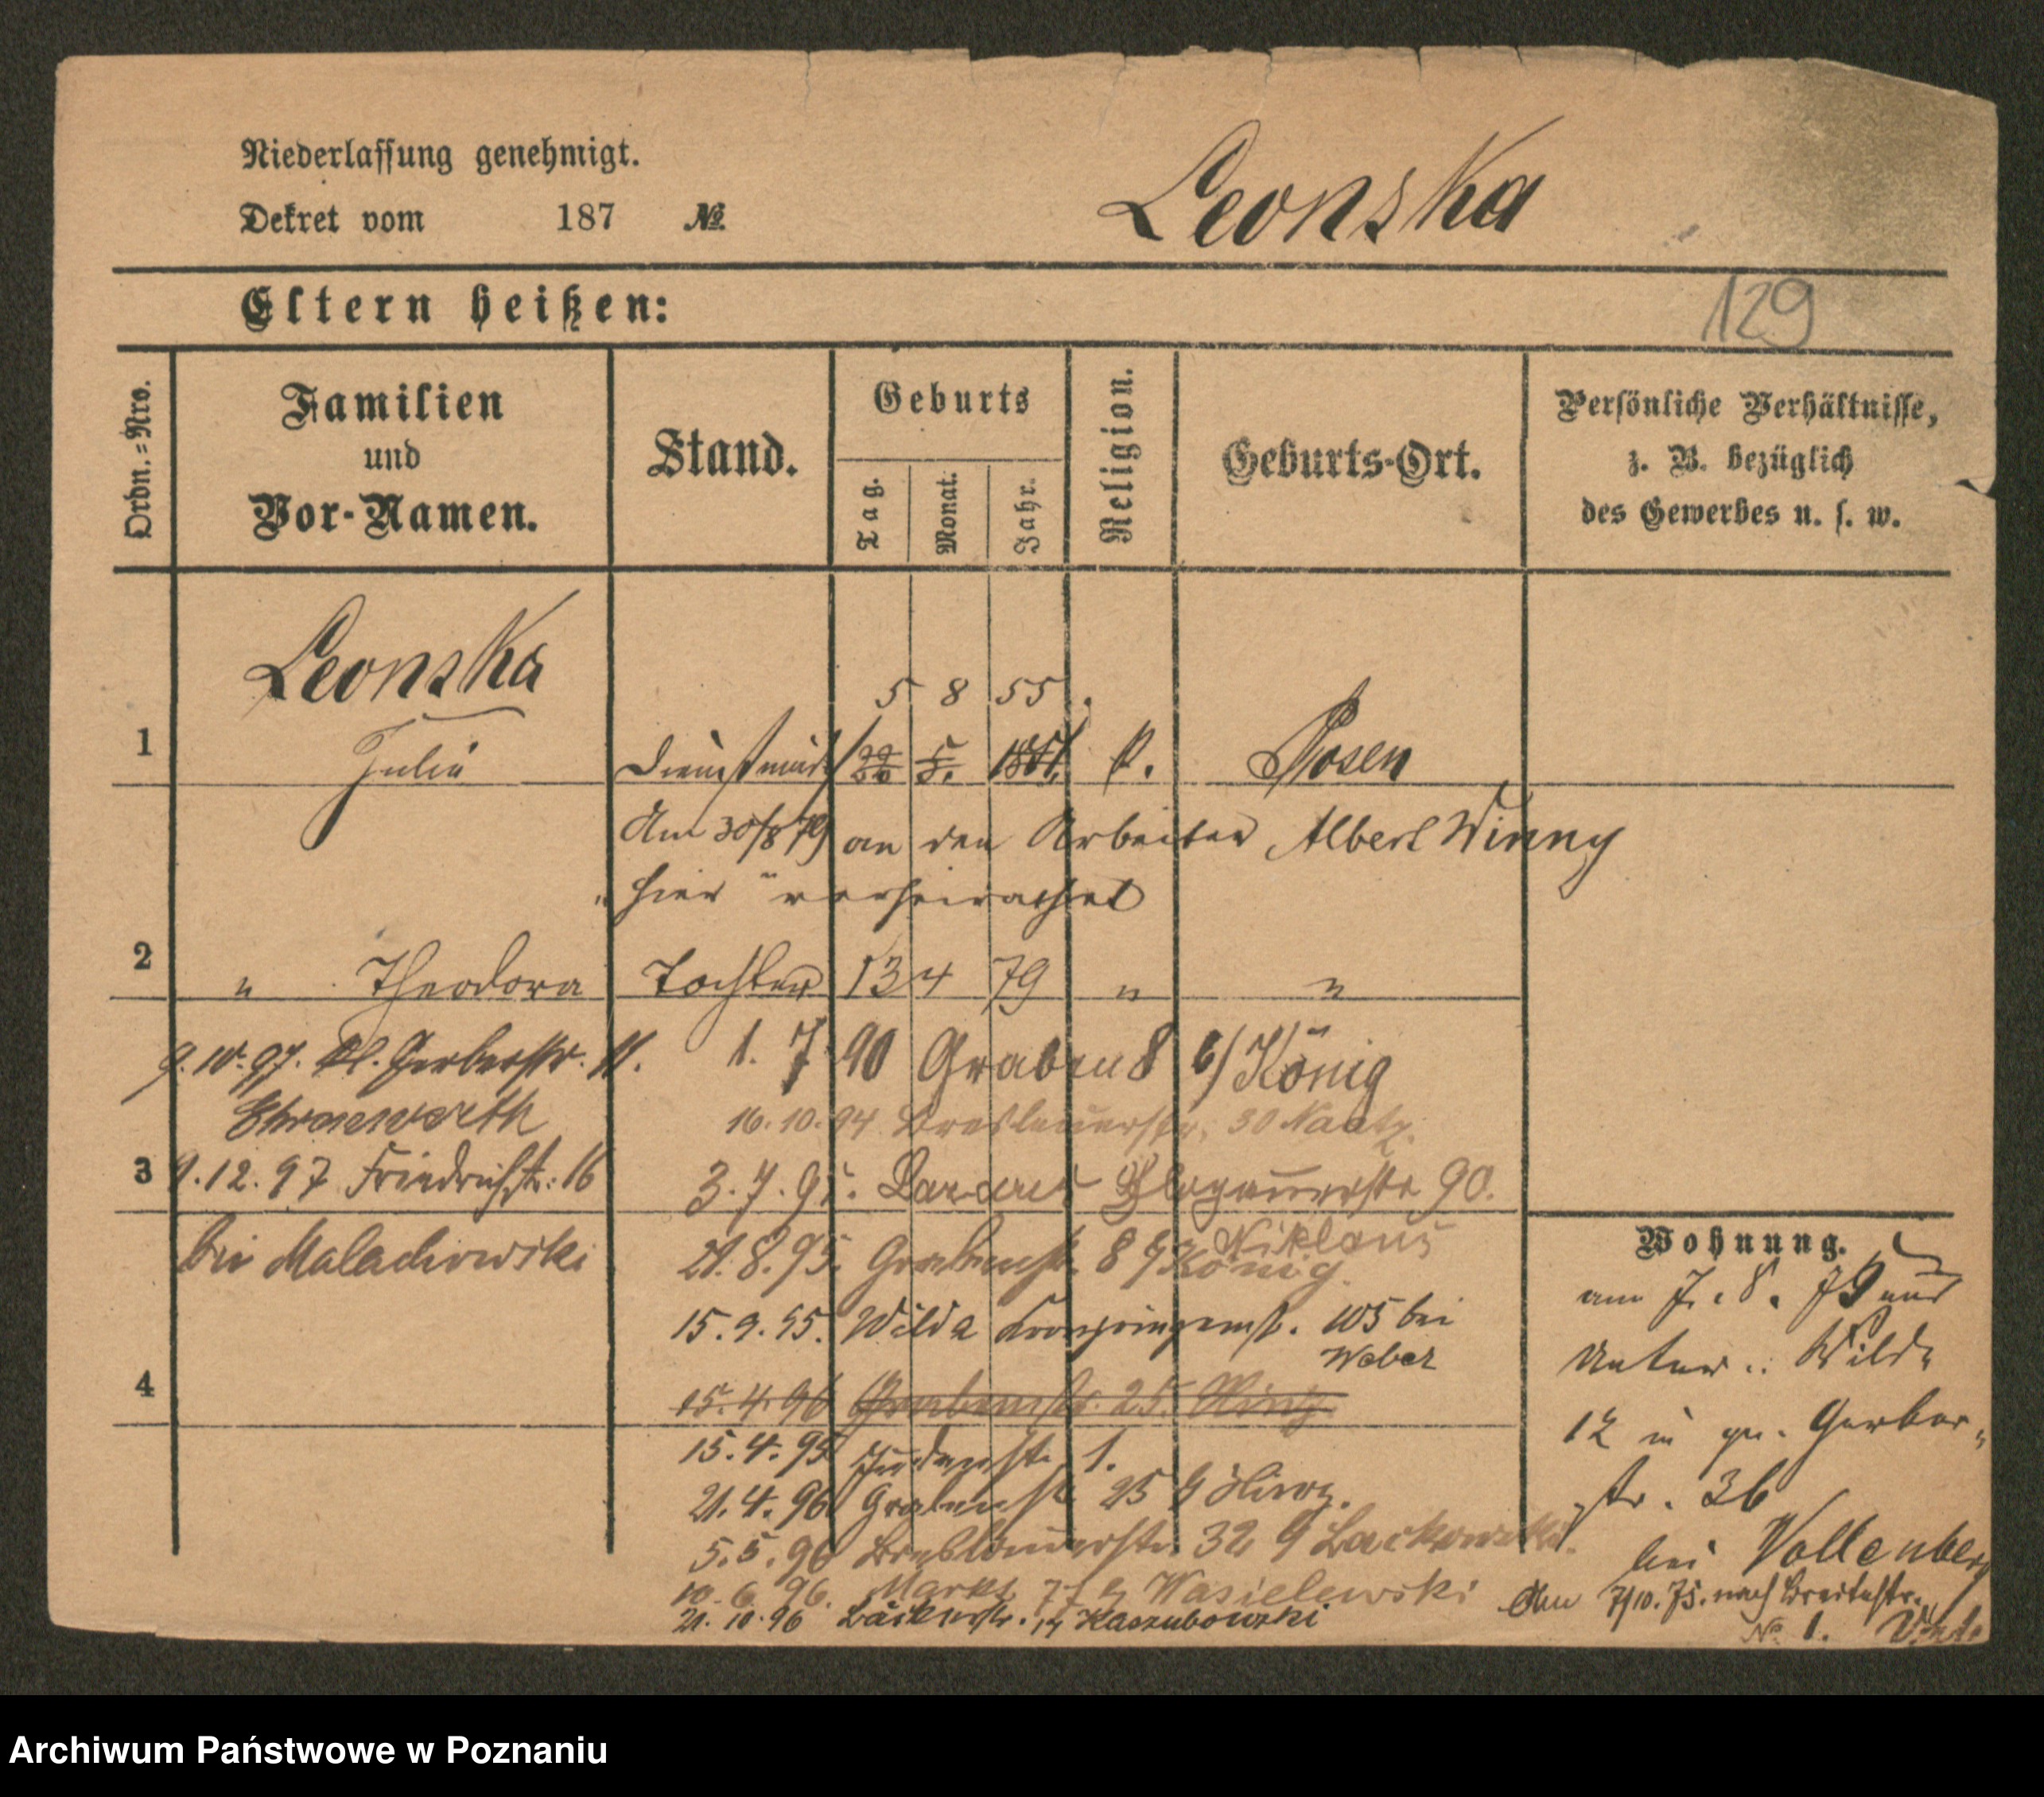 Niederlassung genehmigt.
Dekret vom 187 № Leonska
Eltern heißen:
129
Ordn.=Nro.
Familien
und
Vor-Namen.
Stand.
Geburts
Tag.
Monat.
Jahr.
Religion.
Geburts-Ort.
Persönliche Verhältnisse,
z. B. bezüglich
des Gewerbes u. s. w.
Leonska
5 8 55.
1 Julia Dienstmäd 1851. k. Posen
Am 30/8 79 an den Arbeiter Albert Winny
hier verheirathet
2 " Theodora Tochter 13 4 79 " "
9.10.97. Kl. Gerberstr. 11.
1. 7 90 Graben 8 b/ König
Ehrenwerth
16.10.94 Breslauerstr. 30 Naatz.
3 9.12.97 Friedrichstr. 16
3.7.95. Lazarus Glogauerstr 90.
Niklaus
bei Malachowski
21.8.95. Grabenstr. 8 b/ König.
15.9.95. Wilda Kronprinzenst. 105 bei
Weber
4
15.4.96 Grabenstr. 25.
15.4.95 Judenstr. 1.
21.4.96 Grabenstr 25
5.5.96 Breslauerstr. 32 b Lackowski.
10.6.96. Markt 77 b Wasielewski
21.10.96 Bäckerstr. 14 Kaszubowski
Wohnung.
am 7.8.79 aus
Unter : Wilda
12 in gr. Gerber-
str. 36
bei Wollenberg
Am 7/10.75. nach Breitestr.
No 1.
Archiwum Państwowe w Poznaniu